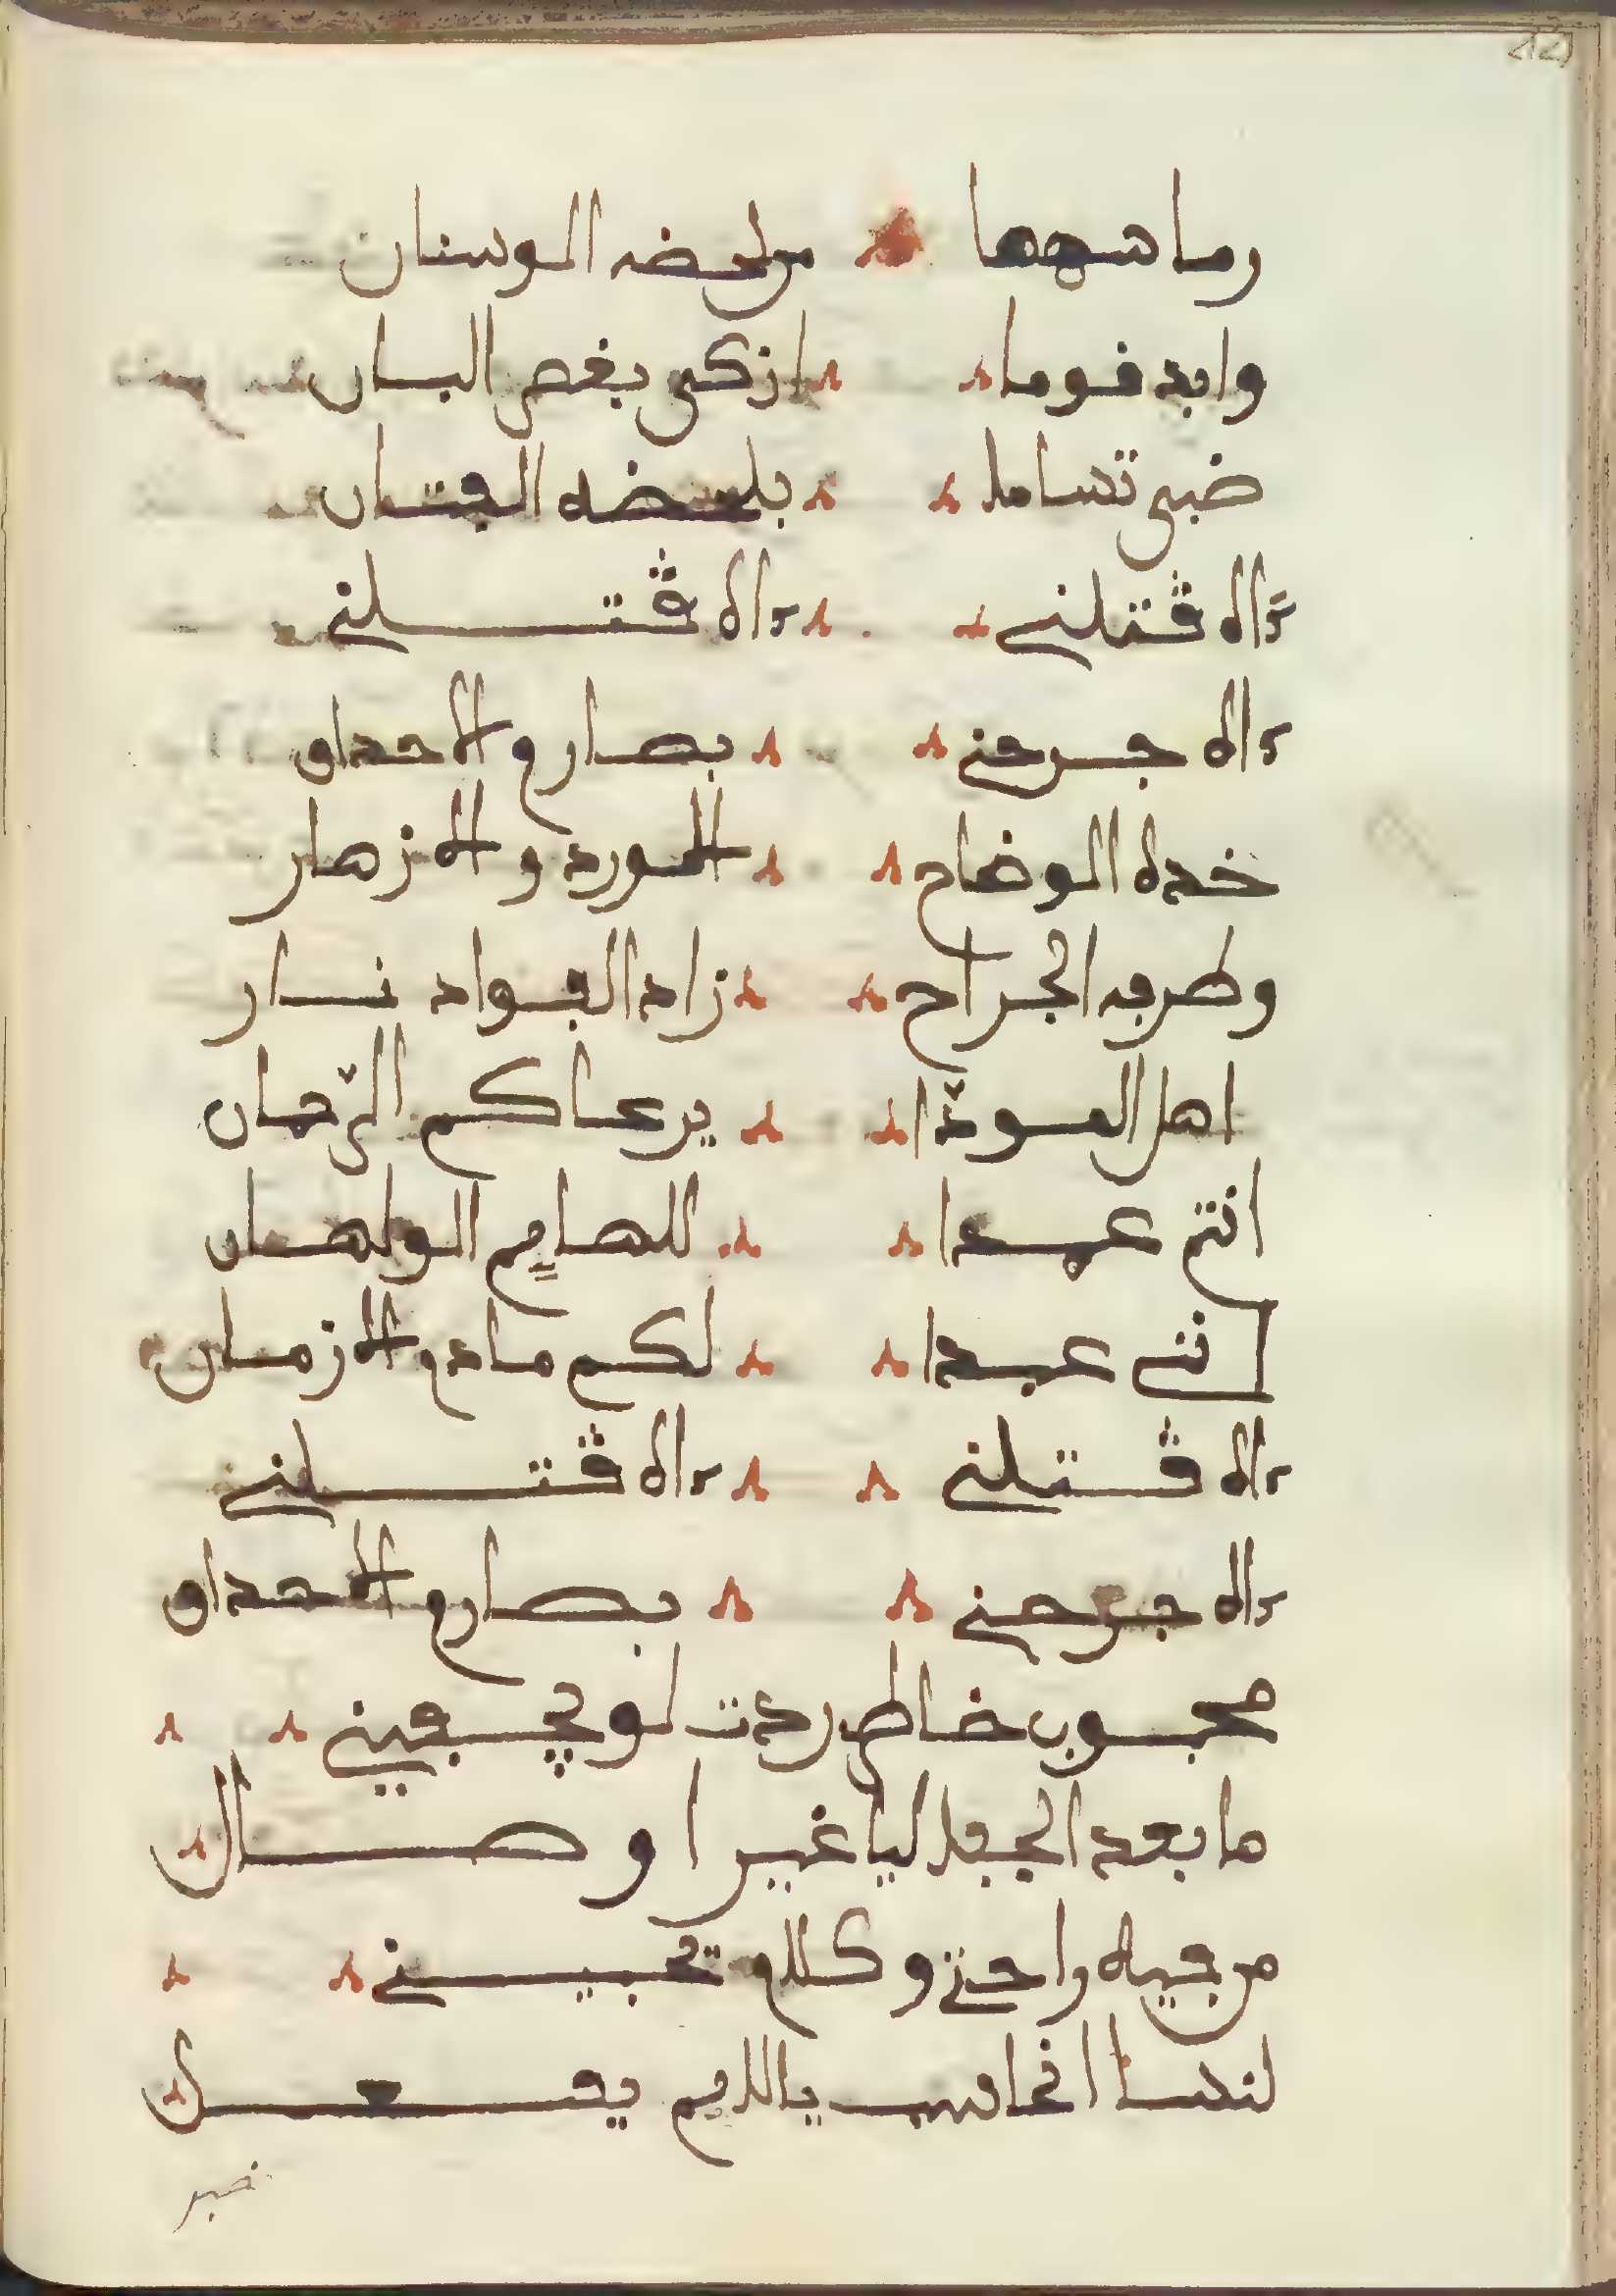 رما سهما من لحضه الوسنان
وابد فوما ازكى بغصن البان
ضبى تساما بلحضه الفتان
ءاه ڧتلنى ءاه ڧتلنى
ءاه جرحنى بصارم الاحداق
خده الوضاح الورد والازهار
وطرفه الجراح زاد الفواد نار
اهل المودّا يرعاكم الرّحمان
انتم عمدا للهايم الولهان
انى عبدا لكم مادام الازمان
ءاه ڧتلنى ءاه ڧتلنى
ءاه جرحنى بصارم الاحداق
محبوب خاطر ردت لو يجفينى
ما بعد الجفا ليا غير اوصال
من جيبه راحتى وكلام تحيينى
لنسا انحاسب يا لايم يفعل
خبر